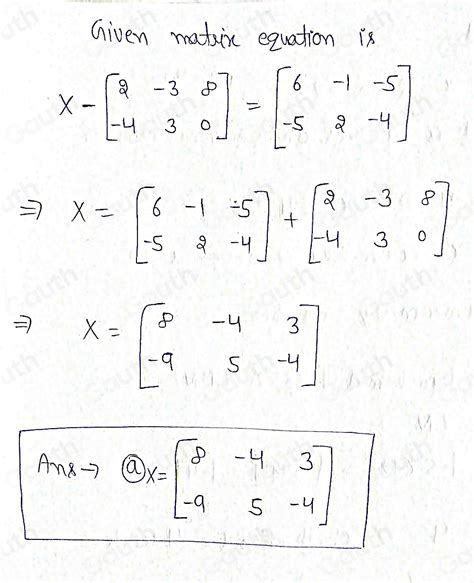 Given matrix equation is
X - [2 -3 8
-4 3 0] = [6 -1 -5
-5 2 -4]
⇒ X = [6 -1 -5
-5 2 -4] + [2 -3 8
-4 3 0]
⇒ X = [8 -4 3
-9 5 -4]
Ans → ⓐ X = [8 -4 3
-9 5 -4]